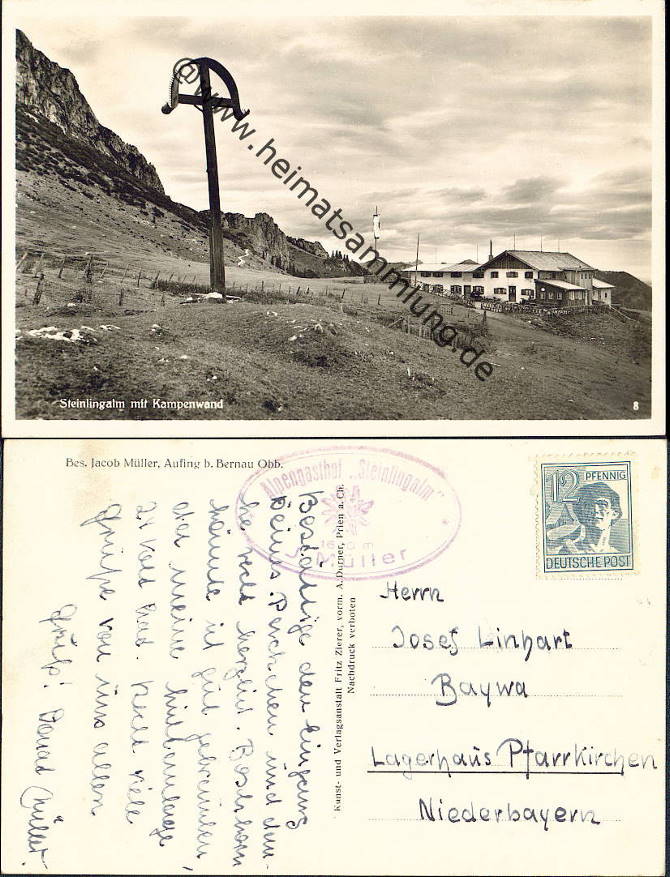 @www.heimatsammlung.de
Steinlingalm mit Kampenwand
8
Bes. Jacob Müller, Aufing b. Bernau Obb.
Alpengasthof „Steinlingalm"
m
J. Müller
12 PFENNIG
DEUTSCHE POST
Bestätige den Eingang
Deines Päckchen und dan-
ke recht herzlich.
könnte ich gut gebrauchen,
da meine
2 Kold had. Recht viele
Grüße von uns allen
Gruß! Müller.
Kunst- und Verlagsanstalt Fritz Zierer, vorm. A. Durner, Prien a. Ch.
Nachdruck verboten
Herrn
Josef Linhart
Baywa
Lagerhaus Pfarrkirchen
Niederbayern